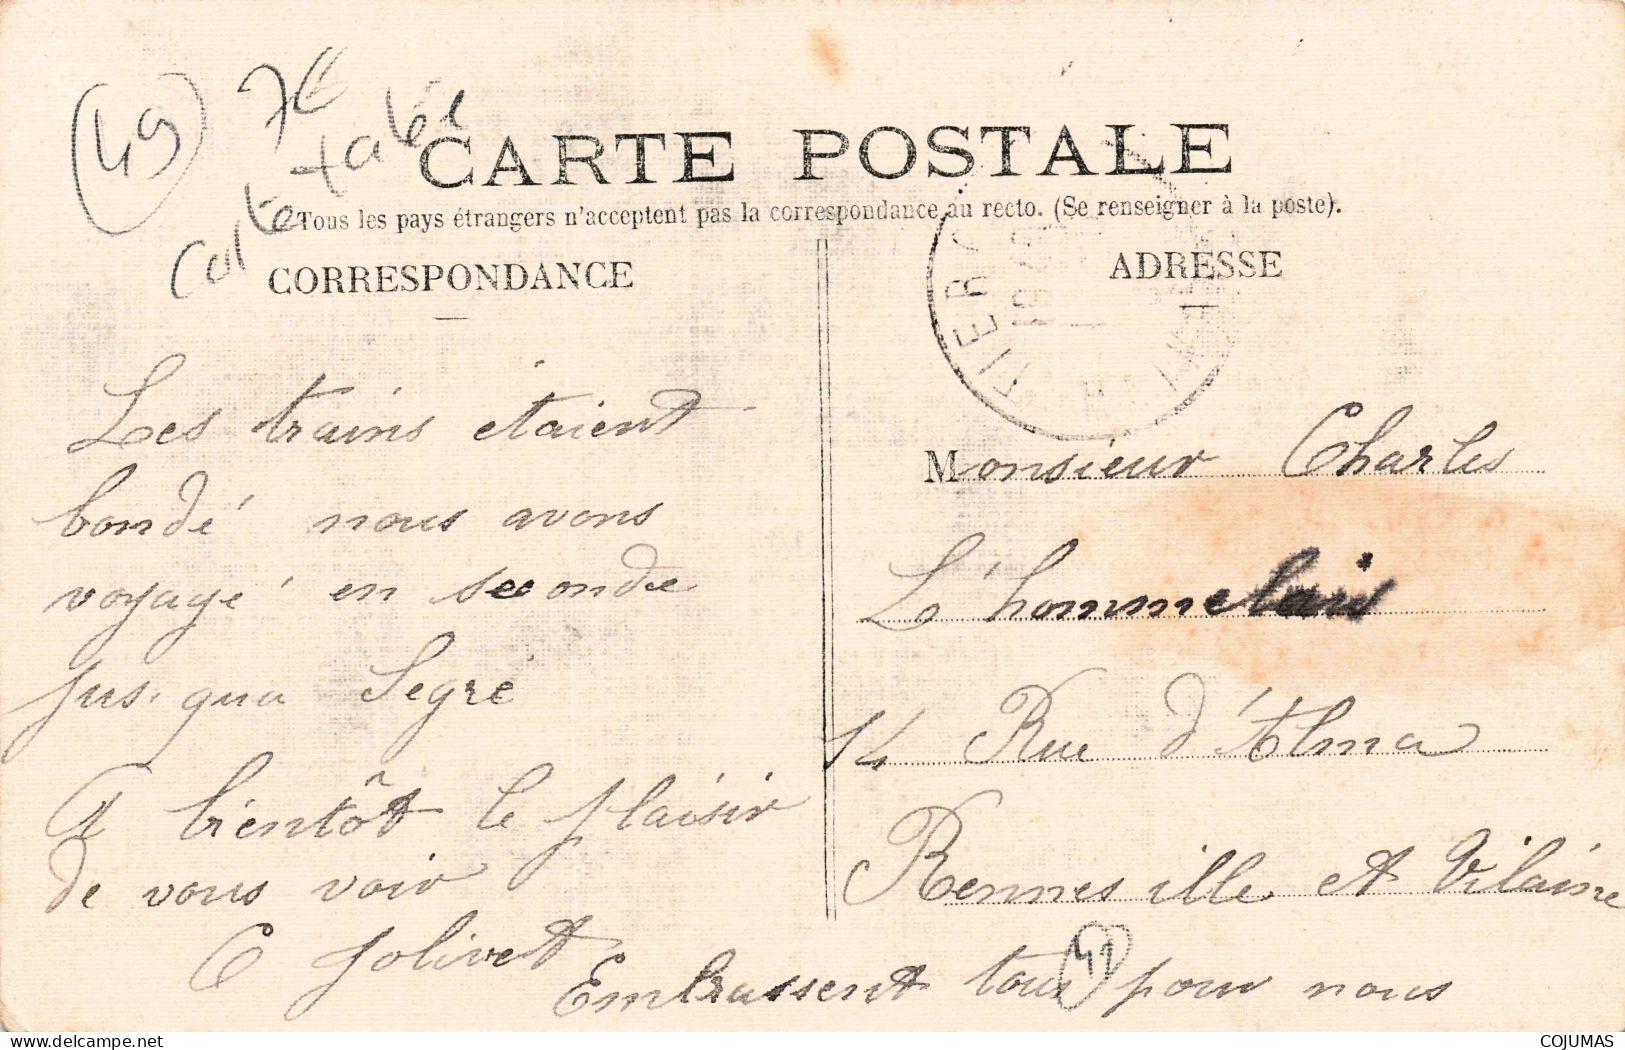 (49) 7€
carte tachée
CARTE POSTALE
Tous les pays étrangers n'acceptent pas la correspondance au recto. (Se renseigner à la poste).
CORRESPONDANCE
ADRESSE
TIERC
Les trains etaient
bondé nous avons
voyagé en seconde
jus. qua Segré
A bientôt le plaisir
de vous voir
C Jolivet
Embrassent tous pour nous
Monsieur Charles
L'hommelais
14 Rue d'Alma
Rennes ille et Vilaine
delcampe.net
COJUMAS